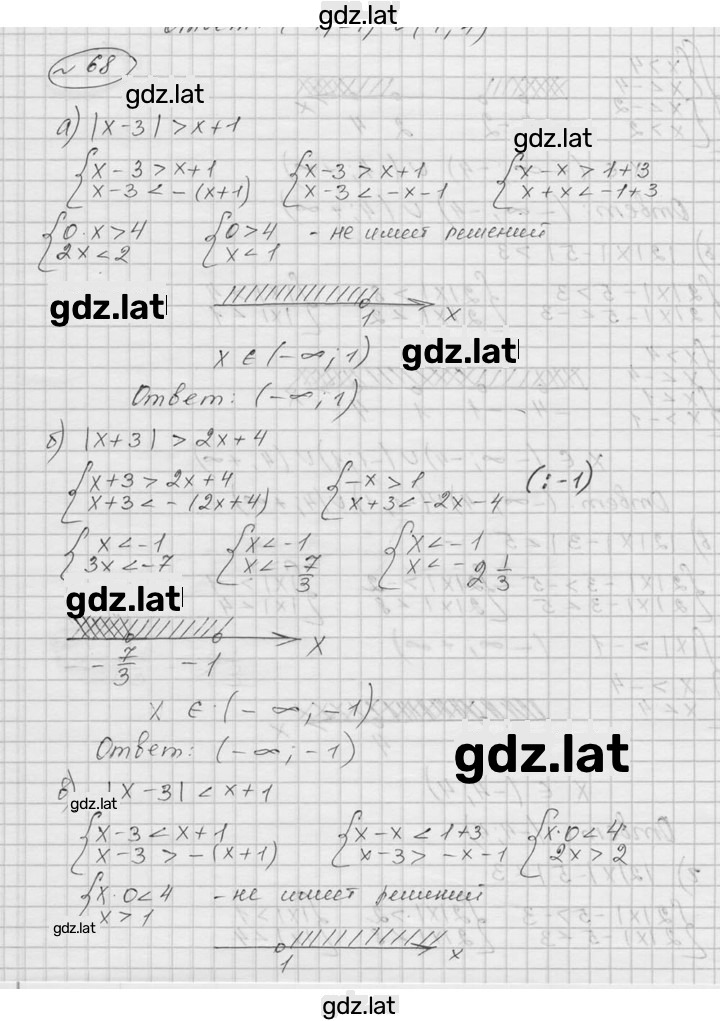 gdz.lat
№ 68
gdz.lat
а) |x-3| > x+1
gdz.lat
{ x-3 > x+1 { x-3 > x+1 { x-x > 1+3
{ x-3 < -(x+1) { x-3 < -x-1 { x+x < -1+3
{ 0·x > 4 { 0 > 4 - не имеет решений
{ 2x < 2 { x < 1
gdz.lat
1 x
x ∈ (-∞; 1)
gdz.lat
Ответ: (-∞; 1)
б) |x+3| > 2x+4
{ x+3 > 2x+4 { -x > 1 (:-1)
{ x+3 < -(2x+4) { x+3 < -2x-4
{ x < -1 { x < -1 { x < -1
{ 3x < -7 { x < -7/3 { x < -2 1/3
gdz.lat
-7/3 -1 x
x ∈ (-∞; -1)
Ответ: (-∞; -1)
gdz.lat
в) |x-3| < x+1
gdz.lat
{ x-3 < x+1 { x-x < 1+3 { x·0 < 4
{ x-3 > -(x+1) { x-3 > -x-1 { 2x > 2
{ x·0 < 4 - не имеет решений
{ x > 1
gdz.lat
1 x
gdz.lat